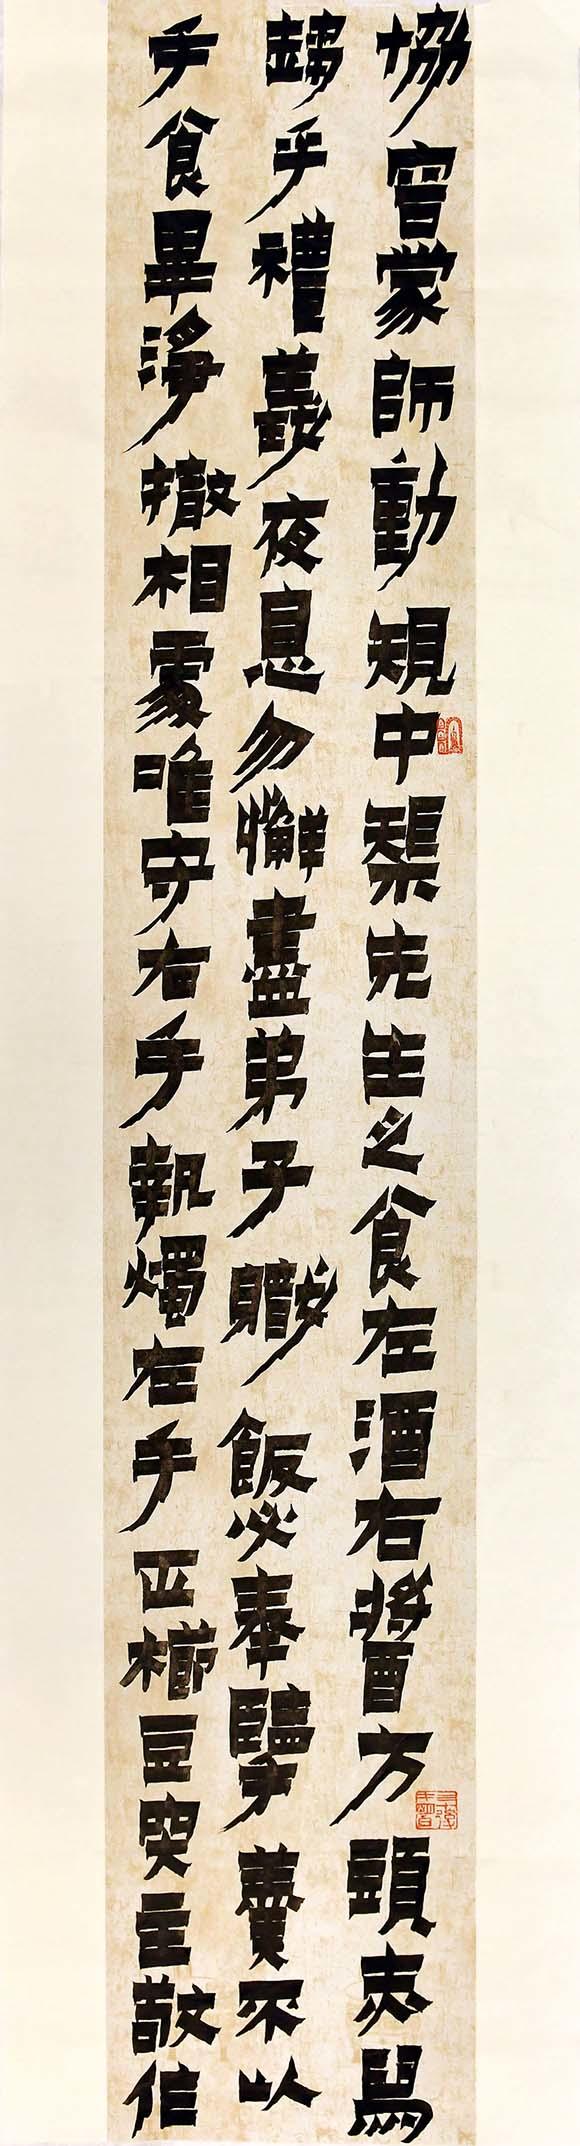 協蒙師動規中榘先生之食左酒右醬方頭夾舄
趨乎禮義夜息勿懈盡弟子職飯必奉擥羹不以
手食畢淨撤相處唯守右手執燭左手正櫛豆突主敬信